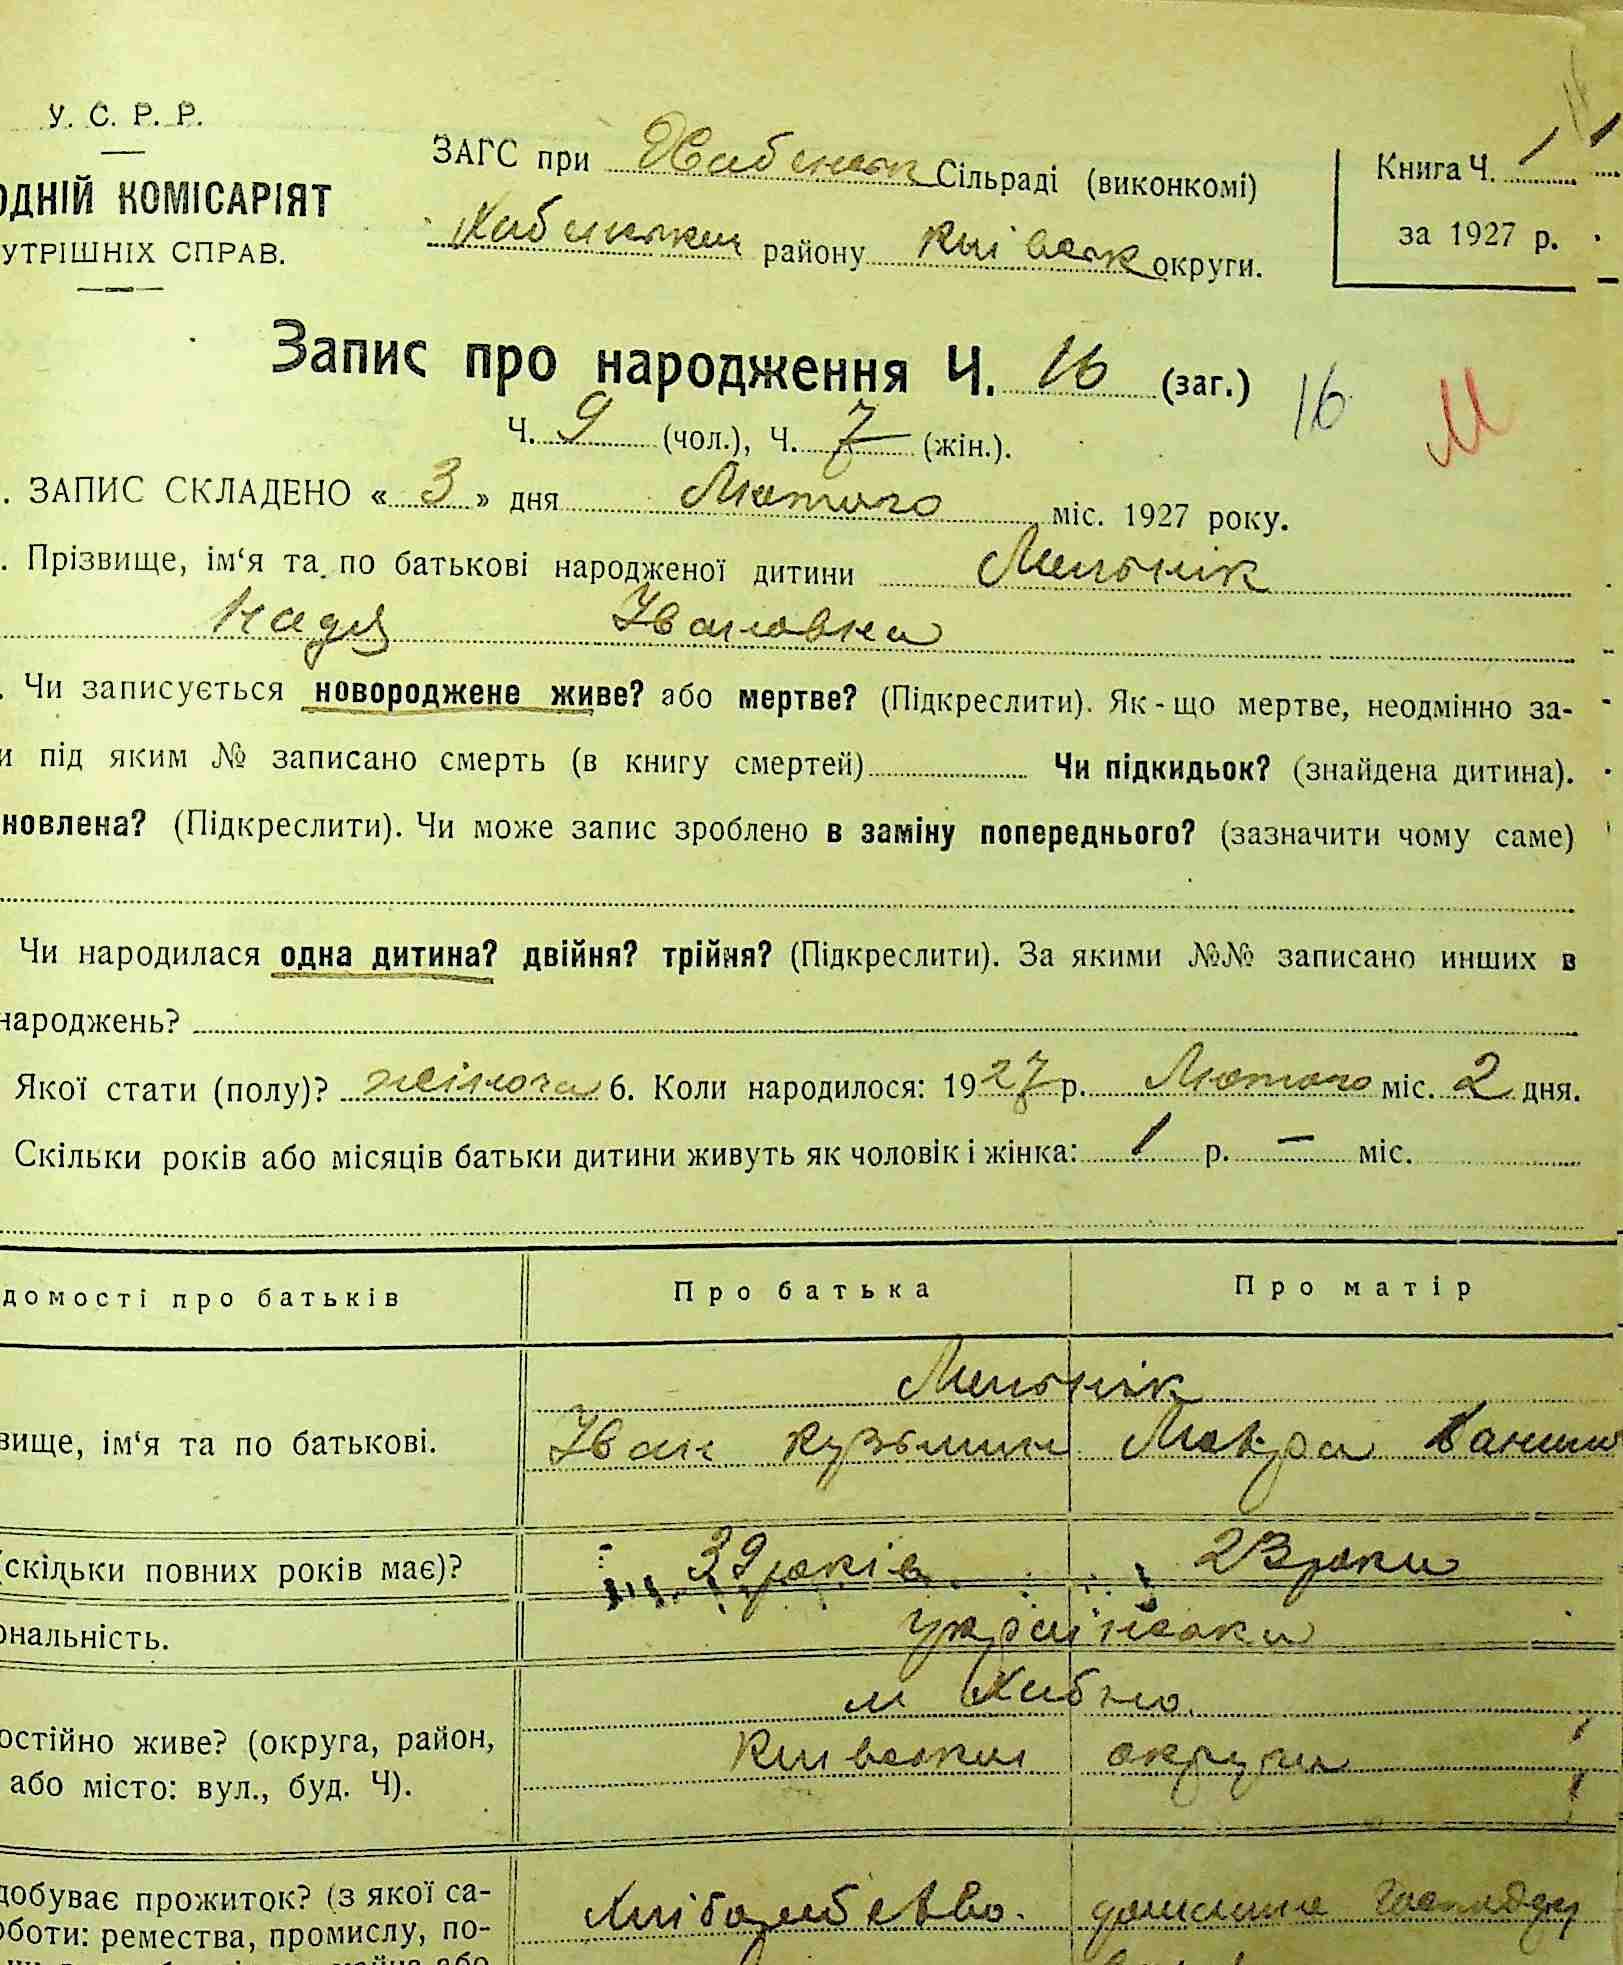 У. С. Р. Р.
ОДНІЙ КОМІСАРІЯТ
УТРІШНІХ СПРАВ.
ЗАГС при Хабенськ Сільраді (виконкомі)
Хабенський району Київськ округи.
Книга Ч. 1 1
за 1927 р.
Запис про народження Ч. 16 (заг.) 16 М
Ч. 9 (чол.), Ч. 7 (жін.).
. ЗАПИС СКЛАДЕНО « 3 » дня Лютого міс. 1927 року.
. Прізвище, ім‘я та по батькові народженої дитини Мельнік
Надя Івановна
. Чи записується новороджене живе? або мертве? (Підкреслити). Як-що мертве, неодмінно за-
и під яким № записано смерть (в книгу смертей) Чи підкидьок? (знайдена дитина).
новлена? (Підкреслити). Чи може запис зроблено в заміну попереднього? (зазначити чому саме)
Чи народилася одна дитина? двійня? трійня? (Підкреслити). За якими №№ записано инших в
народжень?
Якої стати (полу)? жіноча 6. Коли народилося: 1927 р. Лютого міс. 2 дня.
Скільки років або місяців батьки дитини живуть як чоловік і жінка: 1 р. – міс.
домості про батьків Про батька Про матір
Мельнік
вище, ім‘я та по батькові. Іван Кузьмин
(скільки повних років має)? 39 років 23 роки
ональність. українська
м Хабно
остійно живе? (округа, район, Київськи округи
або місто: вул., буд. Ч).
добуває прожиток? (з якої са- Хліборобство. домашнє
оботи: ремества, промислу, по-